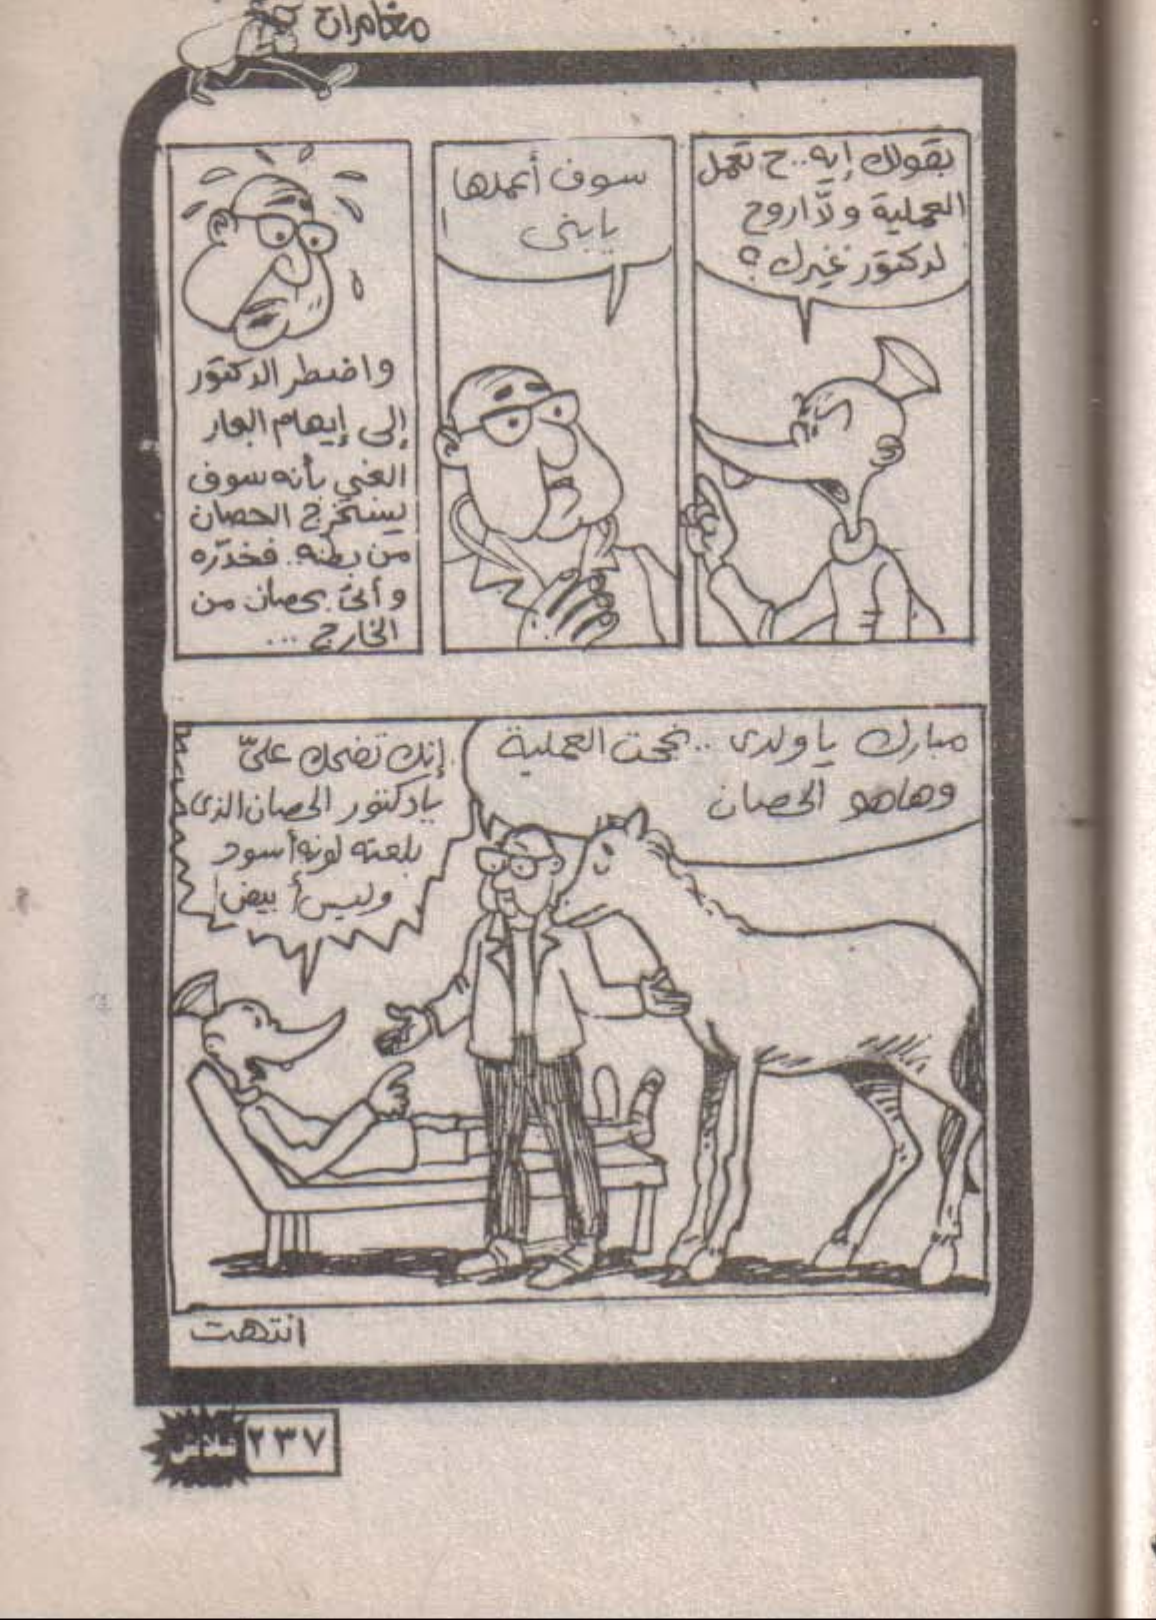 مغامرات
بقولك إيه..ح تعمل
العملية ولّا اروح
لدكتور غيرك؟
سوف أعملها
يابنى
واضطر الدكتور
إلى إيهام البعار
الغني بأنه سوف
يستخرج الحصان
من بطنه. فخدّره
وأتى بحصان من
الخارج ...
مبارك يا ولدى .. نجحت العملية
وهاهو الحصان
إنك تضحك علىّ
يادكتور الحصان الذى
بلعته لونه أسود
وليس أبيض!
انتهت
فلاش
٢٣٧